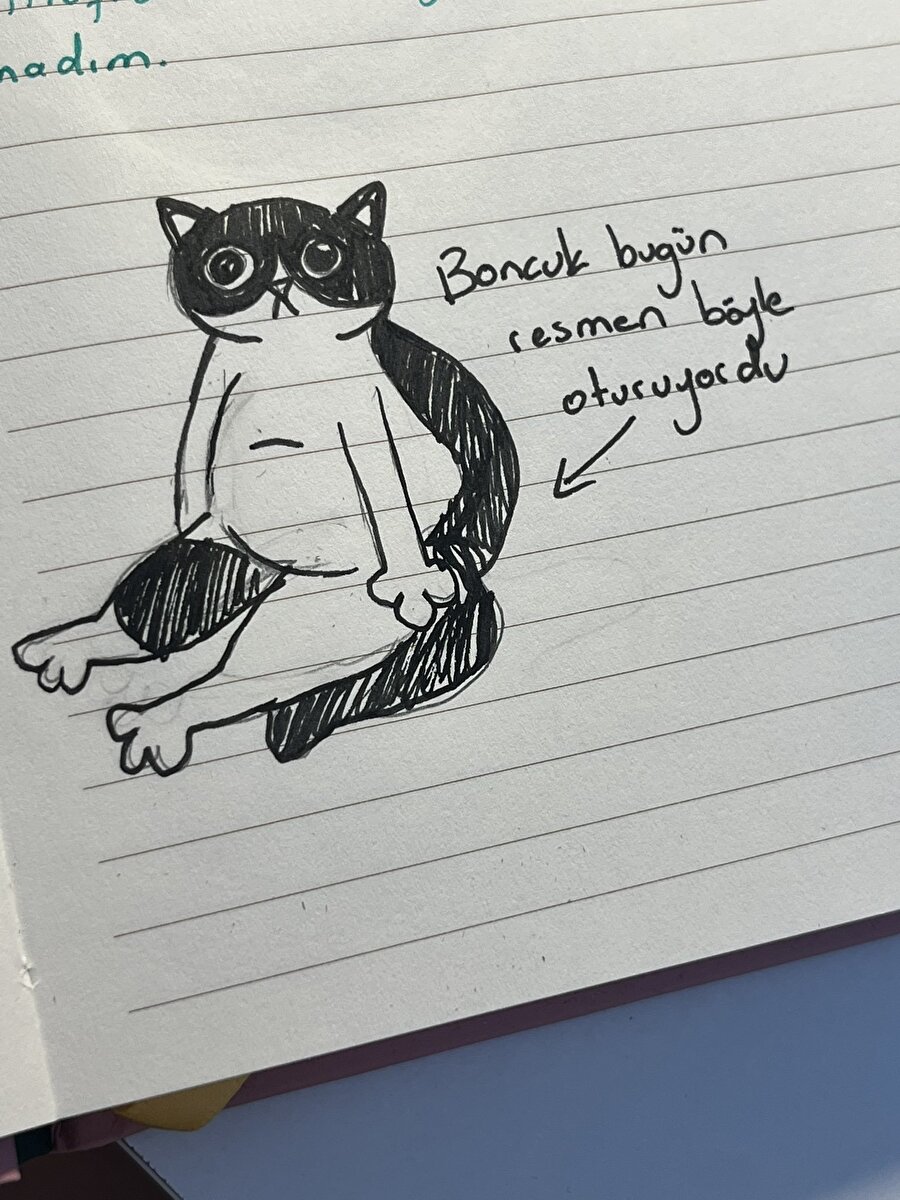 nadım.
Boncuk bugün
resmen böyle
oturuyordu